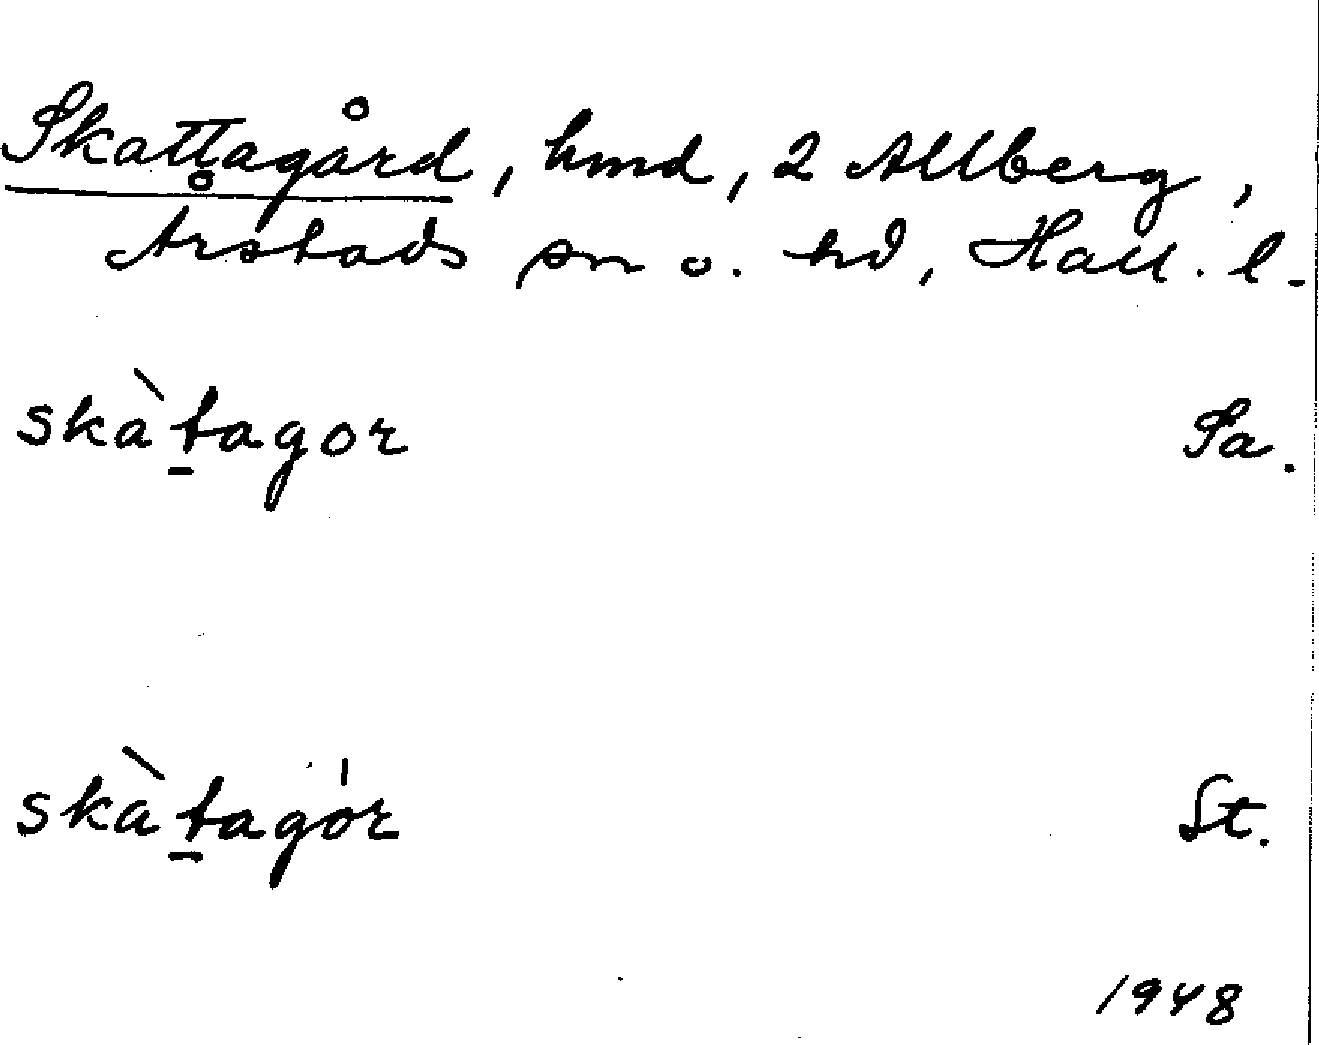 Skattagård, hmd, 2 Allberg,
Årstads sn o. hd, Hall. l.
skàt̲agor Sa.
skàt̲agór St.
1948